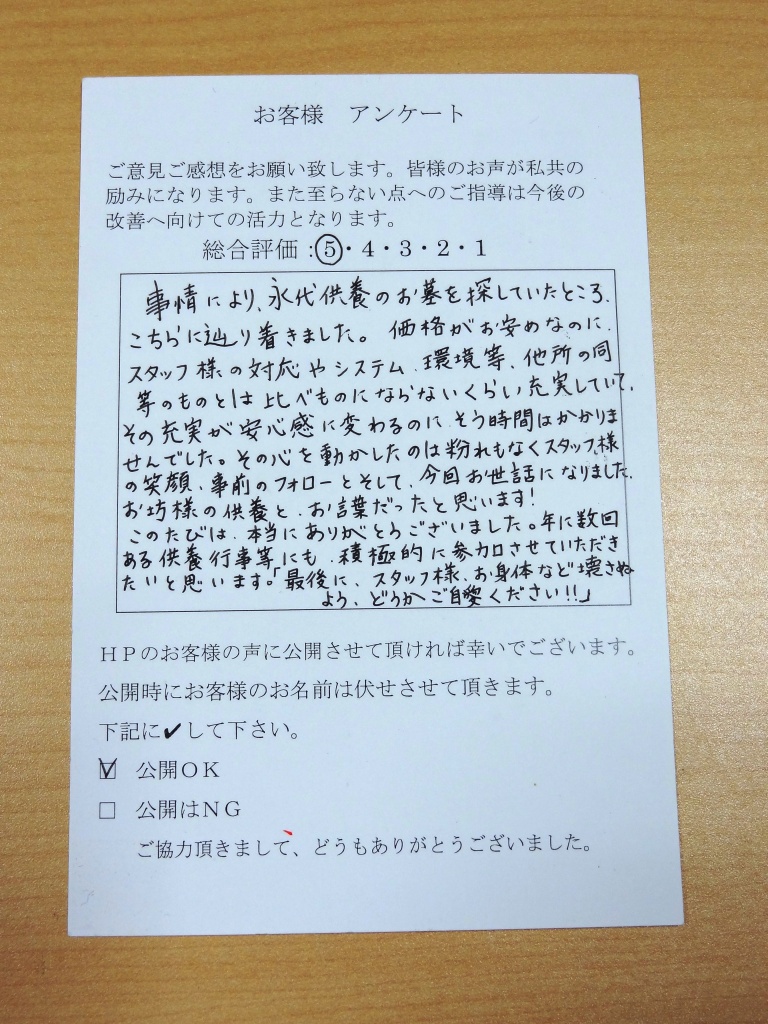 お客様　アンケート
ご意見ご感想をお願い致します。皆様のお声が私共の
励みになります。また至らない点へのご指導は今後の
改善へ向けての活力となります。
総合評価：⑤・４・３・２・１
事情により、永代供養のお墓を探していたところ、
こちらに辿り着きました。価格がお安めなのに、
スタッフ様の対応やシステム、環境等、他所の同
等のものとは比べものにならないくらい充実していて、
その充実が安心感に変わるのに、そう時間はかかりま
せんでした。その心を動かしたのは紛れもなくスタッフ様
の笑顔、事前のフォローとそして、今回お世話になりました、
お坊様の供養と、お言葉だったと思います!
このたびは、本当にありがとうございました。年に数回
ある供養行事等にも、積極的に参加させていただき
たいと思います。「最後に、スタッフ様、お身体など壊さぬ
よう、どうかご自愛ください!!」
ＨＰのお客様の声に公開させて頂ければ幸いでございます。
公開時にお客様のお名前は伏せさせて頂きます。
下記に✔して下さい。
☑　公開ＯＫ
□　公開はＮＧ
ご協力頂きまして、どうもありがとうございました。